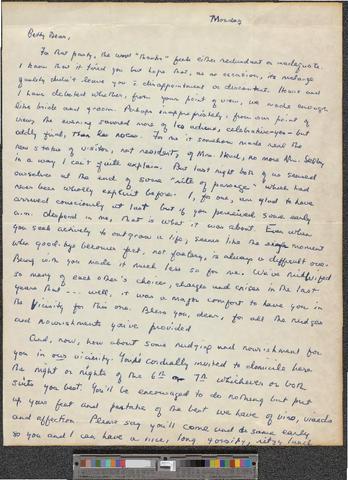 Monday
Betty Dear,
For that party, the word "thanks" feels either redundant or inadequate.
I know that it tired you but hope that, as an occasion, its melange
quality didn't leave you disappointment or discontent. Howie and
I have debated whether, from your point of view, we made enough
like bride and groom. Perhaps inappropriately, from our point of
view, the evening savored more of adieux, celebrative-yes-but
oddly final, than For me it somehow made real the
new status of visitor, not resident, of Man. House, no more Mrs. Selby
in a way I can't quite explain. But last night both of us sensed
ourselves at the end of some "rite of passage" which had
never been wholly explicit before. I, for one, am glad to have
arrived consciously at last but if you perceived some early
a.m. despond in me, that is what it was about. Even when
you seek actively to outgrow a life, seems like the moment
when good-bye becomes fact, not fantasy, is always a difficult one.
Being with you made it much less so for me. We've midwifed
so many of each other's choices, changes and crises in the last
years that -- well, it was a major comfort to have you in
the vicinity for this one. Bless you, dear, for all the nudges
and nourishments you've provided
And, now, how about some nudging and nourishment for
you in our vicinity. You're cordially invited to domicile here
the night or nights of the 6th or 7th whichever or both
suits you best. You'll be encouraged to do nothing but put
up your feet and partake of the best we have of vino, viands
and affection. Please say you'll come and do same early
so you and I can have a nice, long, gossipy, ritzy lunch